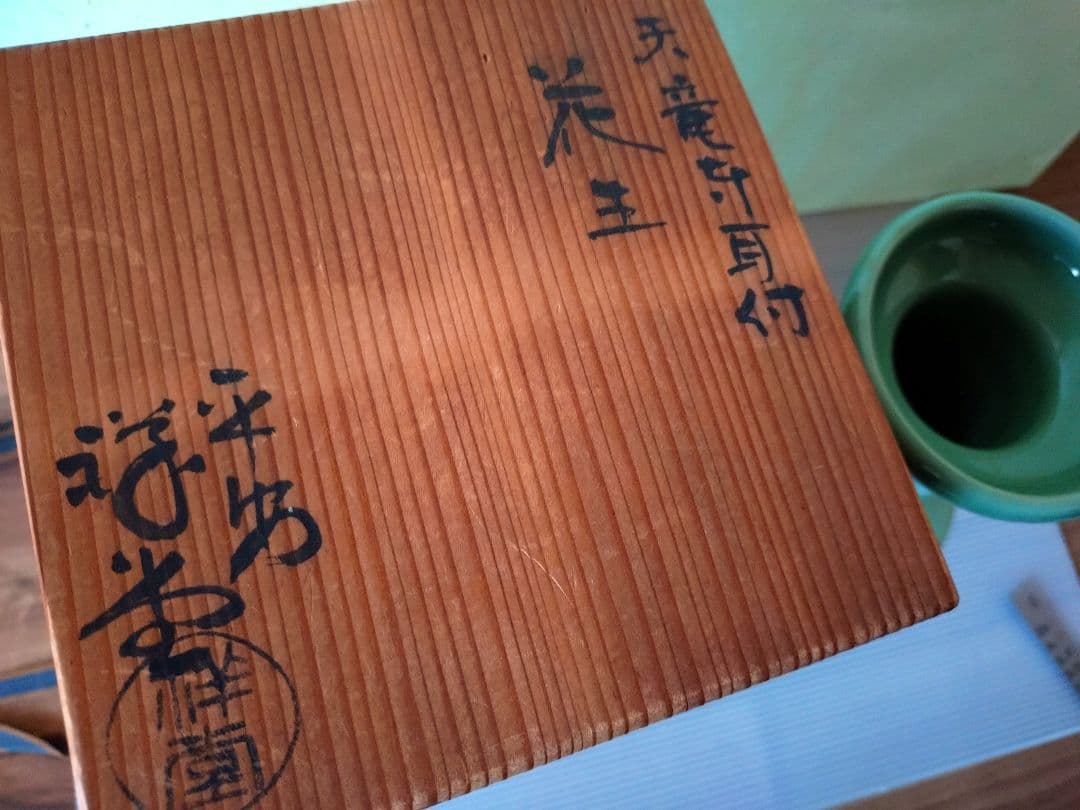 天竜寺耳付
花生
平安
祥堂
祥堂